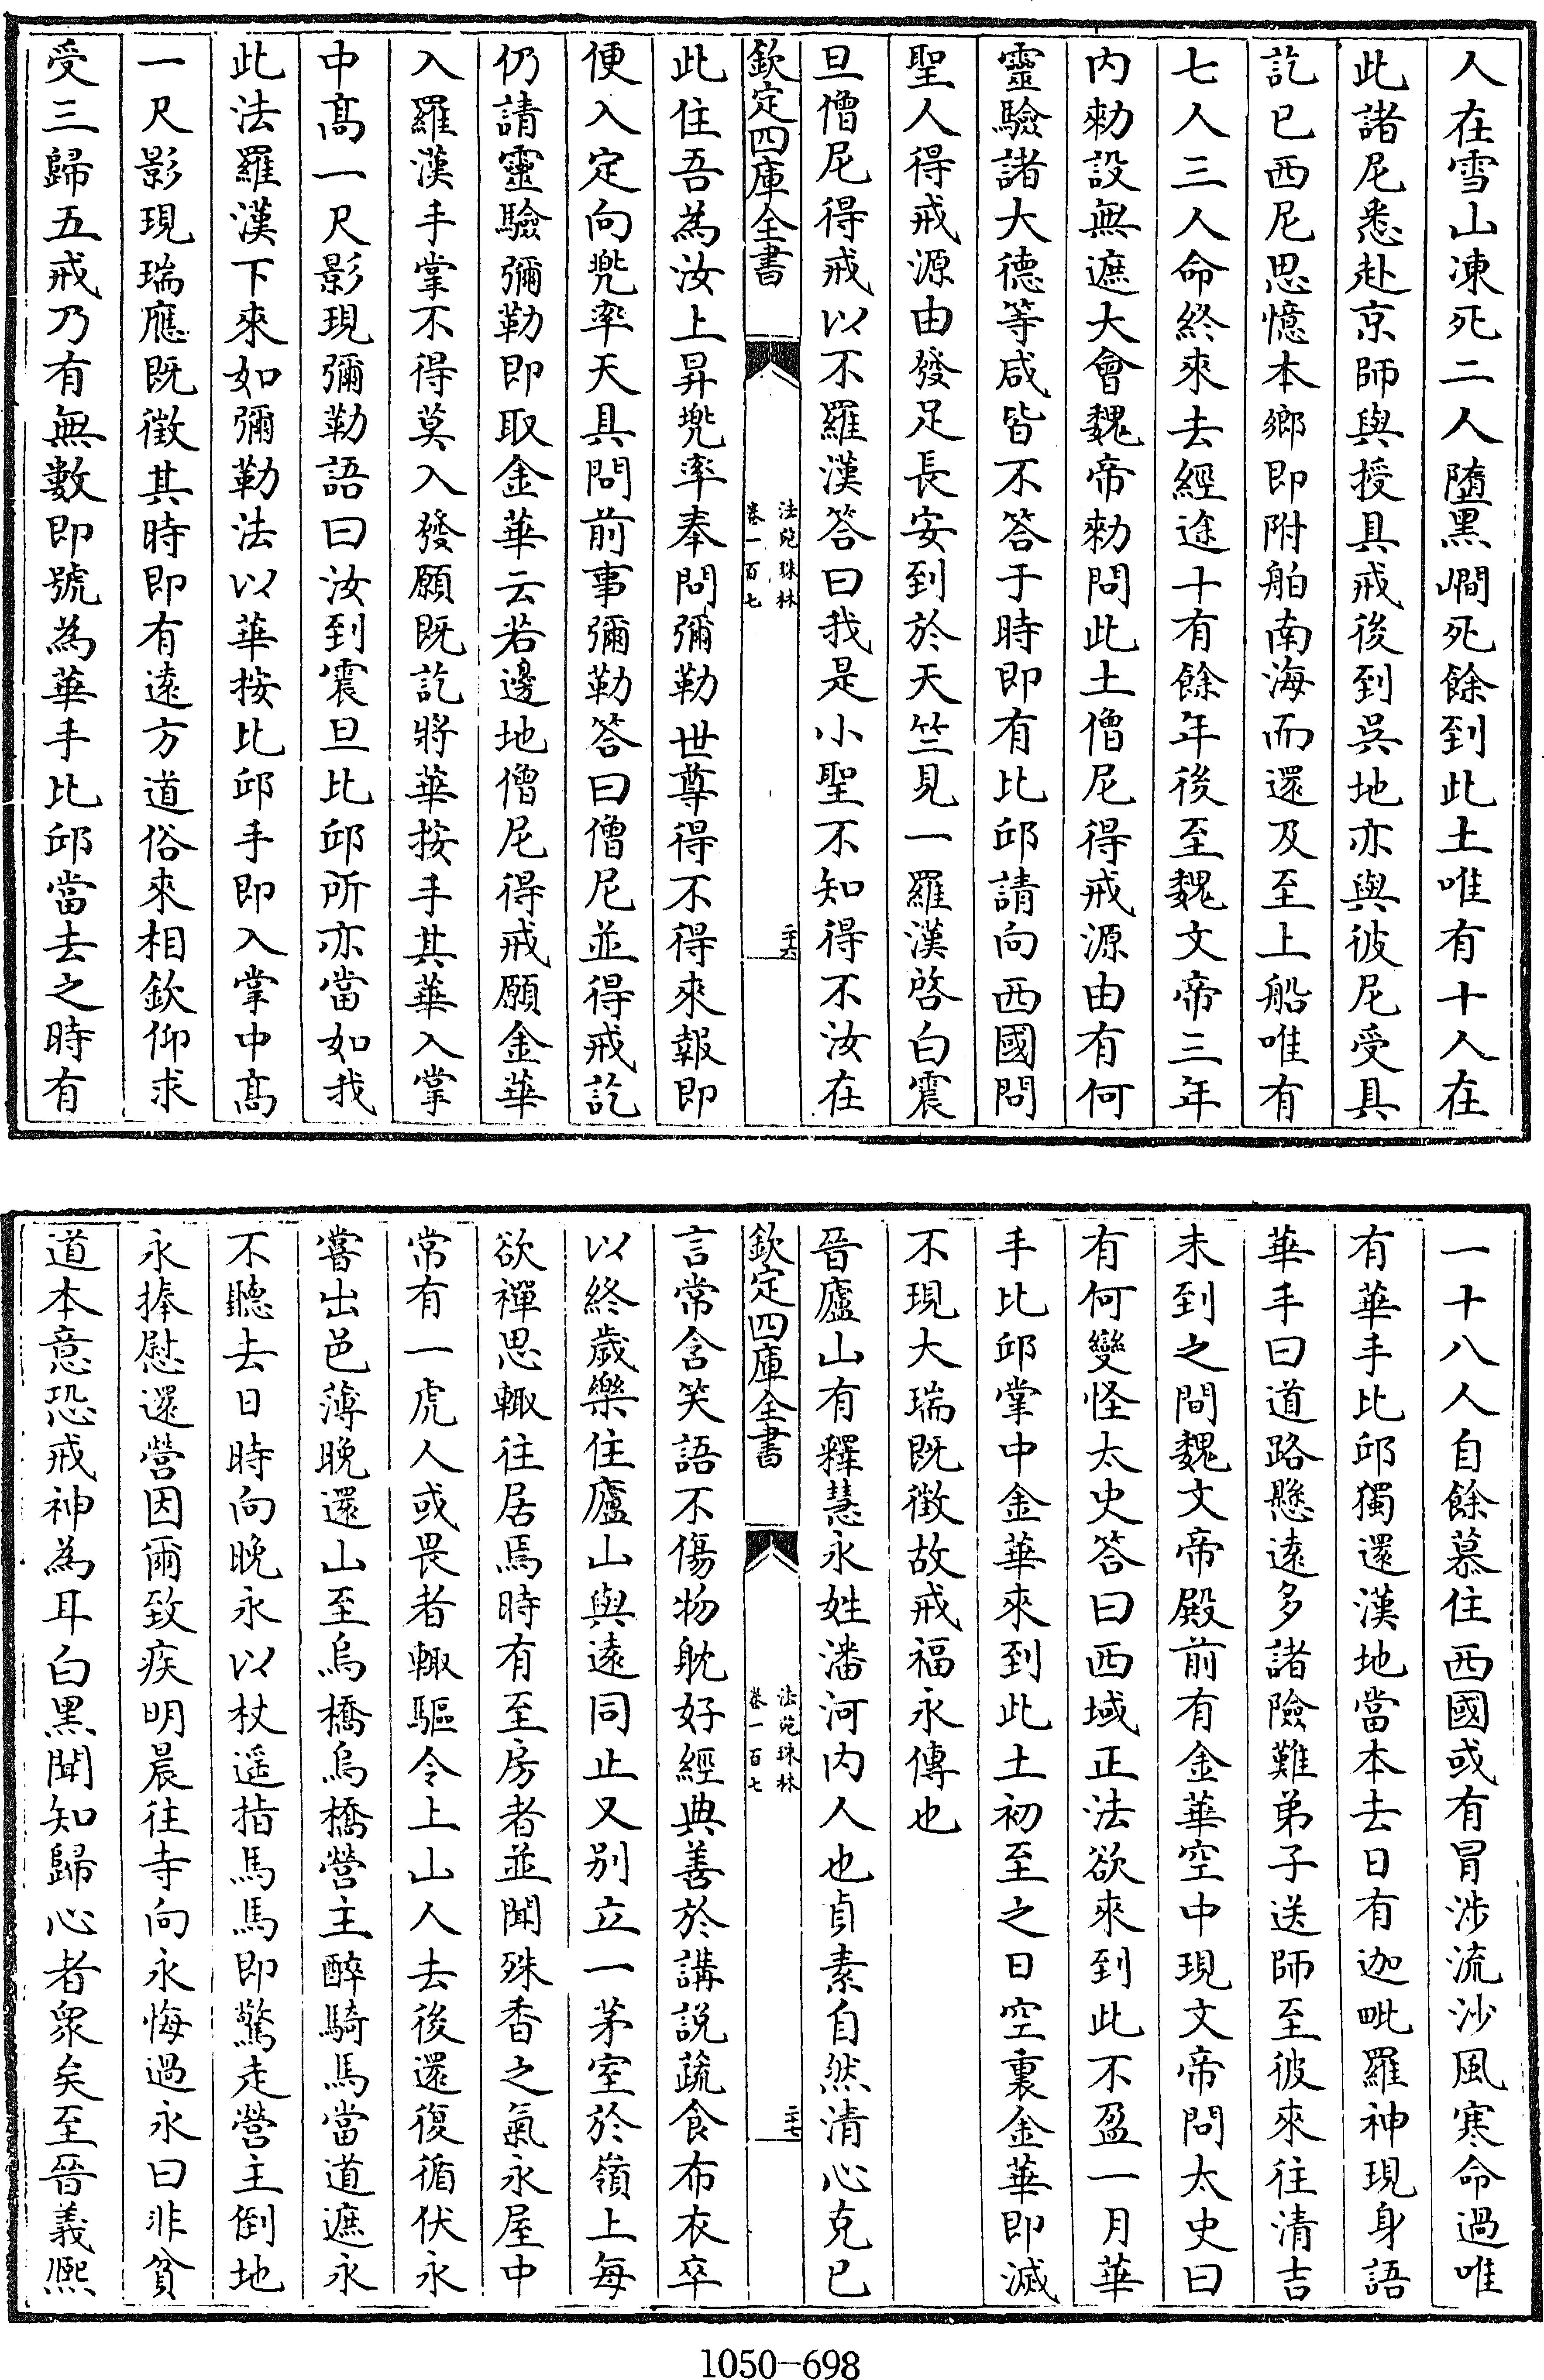 人在雪山凍死二人墮黑㵎死餘到此土唯有十人在
此諸尼悉赴京師與授具戒後到吳地亦與彼尼受具
訖已西尼思憶本鄉即附舶南海而還及至上船唯有
七人三人命終來去經途十有餘年後至魏文帝三年
内勅設無遮大會魏帝勅問此土僧尼得戒源由有何
靈驗諸大德等咸皆不答于時即有比邱請向西國問
聖人得戒源由發足長安到於天竺見一羅漢啓白震
旦僧尼得戒以不羅漢答曰我是小聖不知得不汝在
欽定四庫全書
法苑珠林
卷一百七
二十六
此住吾為汝上昇兠率奉問彌勒世尊得不得來報即
便入定向兠率天具問前事彌勒答曰僧尼並得戒訖
仍請靈驗彌勒即取金華云若邊地僧尼得戒願金華
入羅漢手掌不得莫入發願既訖將華按手其華入掌
中高一尺影現彌勒語曰汝到震旦比邱所亦當如我
此法羅漢下來如彌勒法以華按比邱手即入掌中高
一尺影現瑞應既徵其時即有遠方道俗來相欽仰求
受三歸五戒乃有無數即號為華手比邱當去之時有
一十八人自餘慕住西國或有冒涉流沙風寒命過唯
有華手比邱獨還漢地當本去日有迦毗羅神現身語
華手曰道路懸遠多諸險難弟子送師至彼來往清吉
未到之間魏文帝殿前有金華空中現文帝問太史曰
有何變怪太史答曰西域正法欲來到此不盈一月華
手比邱掌中金華來到此土初至之日空裏金華即滅
不現大瑞既徵故戒福永傳也
晉廬山有釋慧永姓潘河内人也貞素自然清心克已
欽定四庫全書
法苑珠林
卷一百七
二十七
言常含笑語不傷物躭好經典善於講說蔬食布衣卒
以終歲樂住廬山與遠同止又別立一茅室於嶺上每
欲禪思輙往居焉時有至房者並聞殊香之氣永屋中
常有一虎人或畏者輙驅令上山人去後還復循伏永
嘗出邑薄晚還山至烏橋烏橋營主醉騎馬當道遮永
不聽去日時向晚永以杖遥指馬馬即驚走營主倒地
永捧慰還營因爾致疾明晨往寺向永悔過永曰非貧
道本意恐戒神為耳白黑聞知歸心者衆矣至晉義熙
1050-698